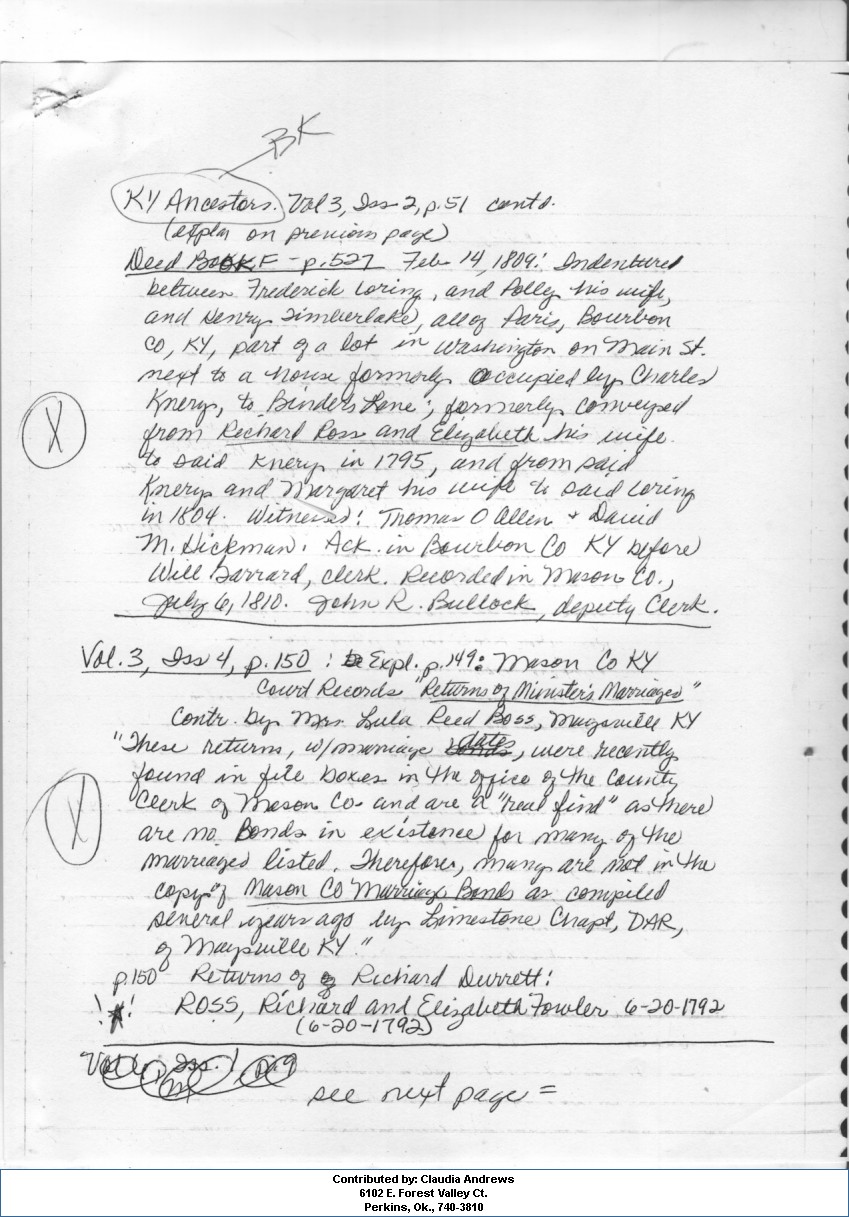 BK
KY Ancestors. Vol 3, Iss 2, p.51 contd.
(expln on previous page)
Deed Book F - p.527 Feb 14, 1809: Indentured
between Frederick Loring, and Polly his wife,
and Henry Timberlake, all of Paris, Bourbon
Co, KY, part of a lot in Washington on Main St.
next to a house formerly occupied by Charles
Knery, to Binders Lane; formerly conveyed
from Richard Ross and Elizabeth his wife
to said Knery in 1795, and from said
Knery and Margaret his wife to said Loring
in 1804. Witnesses: Thomas O Allen + David
M. Hickman. Ack. in Bourbon Co KY before
Will Garrard, clerk. Recorded in Mason Co.,
July 6, 1810. John R. Bullock, deputy Clerk.
X
Vol. 3, Iss 4, p.150 : Expl. p.149: Mason Co KY
Court Records "Returns of Minister's Marriages"
Contr. by Mrs. Lula Reed Boss, Maysville KY
"These returns, w/marriage dates, were recently
found in file boxes in the office of the County
Clerk of Mason Co. and are a "real find" as there
are no Bonds in existence for many of the
marriages listed. Therefore, many are not in the
copy of Mason Co Marriage Bonds as compiled
several years ago by Limestone Chapt, DAR,
of Maysville KY."
X
p.150 Returns of Richard Durrett:
! * ! ROSS, Richard and Elizabeth Fowler 6-20-1792
(6-20-1792)
Iss. 1, p.9
see next page =
Contributed by: Claudia Andrews
6102 E. Forest Valley Ct.
Perkins, Ok., 740-3810